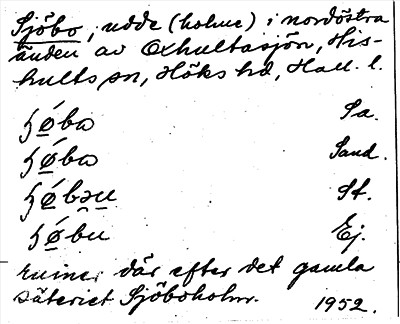 Sjöbo, udde (holme) i nordöstra
änden av Oxhultasjön, His-
hults sn, Höks hd, Hall. l.
ɧǿ̱ba Sa.
ɧǿ̱ba Sand.
ɧǿ̱bəu̲ St.
ɧǿ̱bu Ej.
Ruiner där efter det gamla
säteriet Sjöboholm.
1952.